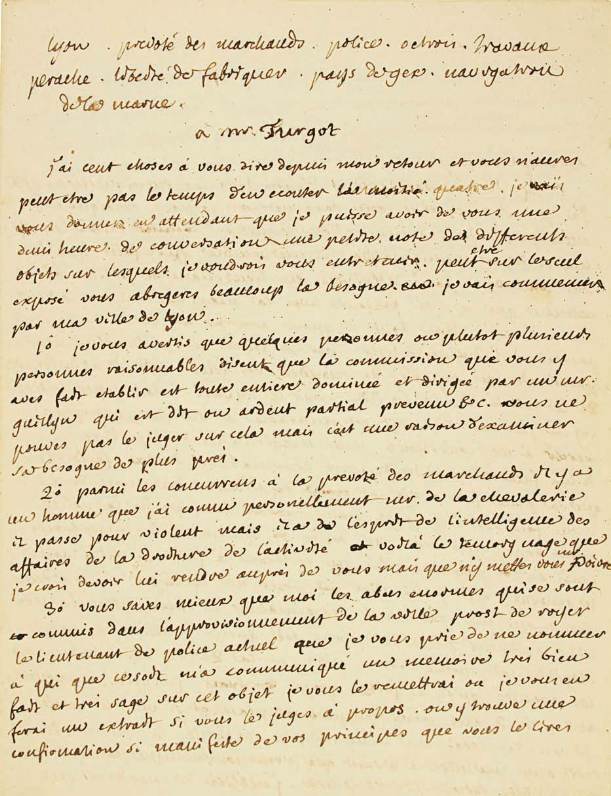 lyon . prevoté des marchands . police . octrois . travaux
perache . liberté de fabriquer . pays de gex . navigation
de la marne .
à mr. Turgot
j'ai cent choses à vous dire depuis mon retour et vous n'aures
peut etre pas le temps d'en ecouter quatre . je vais
vous donner en attendant que je puisse avoir de vous une
demi heure de conversation une petite note de differents
objets sur lesquels je voudrois vous entretenir . peut etre sur le seul
exposé vous abregeres beaucoup la besogne . je vais commencer
par ma ville de lyon .
1o je vous avertis que quelques personnes ou plutot plusieurs
personnes raisonnables disent que la commission que vous y
aves fait etablir est toute entiere dominée et dirigée par un mr.
guillyn qui est dit on ardent partial prevenu &c. vous ne
pouves pas le juger sur cela mais c'est une raison d'examiner
sa besogne de plus pres .
2o parmi les concurrens à la prevoté des marchands il y a
un homme que j'ai connu personellement mr. de la chevalerie
il passe pour violent mais il a de l'esprit de l'intelligence des
affaires de la droiture de l'activité voilà le temoignage que
je crois devoir lui rendre aupres de vous mais que n'y mettes vous mr Poivre
3o vous saves mieux que moi les abus enormes qui se sont
commis dans l'approvisionnement de la ville prost de royer
le lieutenant de police actuel que je vous prie de ne nommer
à qui que ce soit m'a communiqué un memoire trés bien
fait et trés sage sur cet objet je vous le remettrai ou je vous en
ferai un extrait si vous le juges à propos . on y trouve une
confirmation si manifeste de vos principes que vous le lires